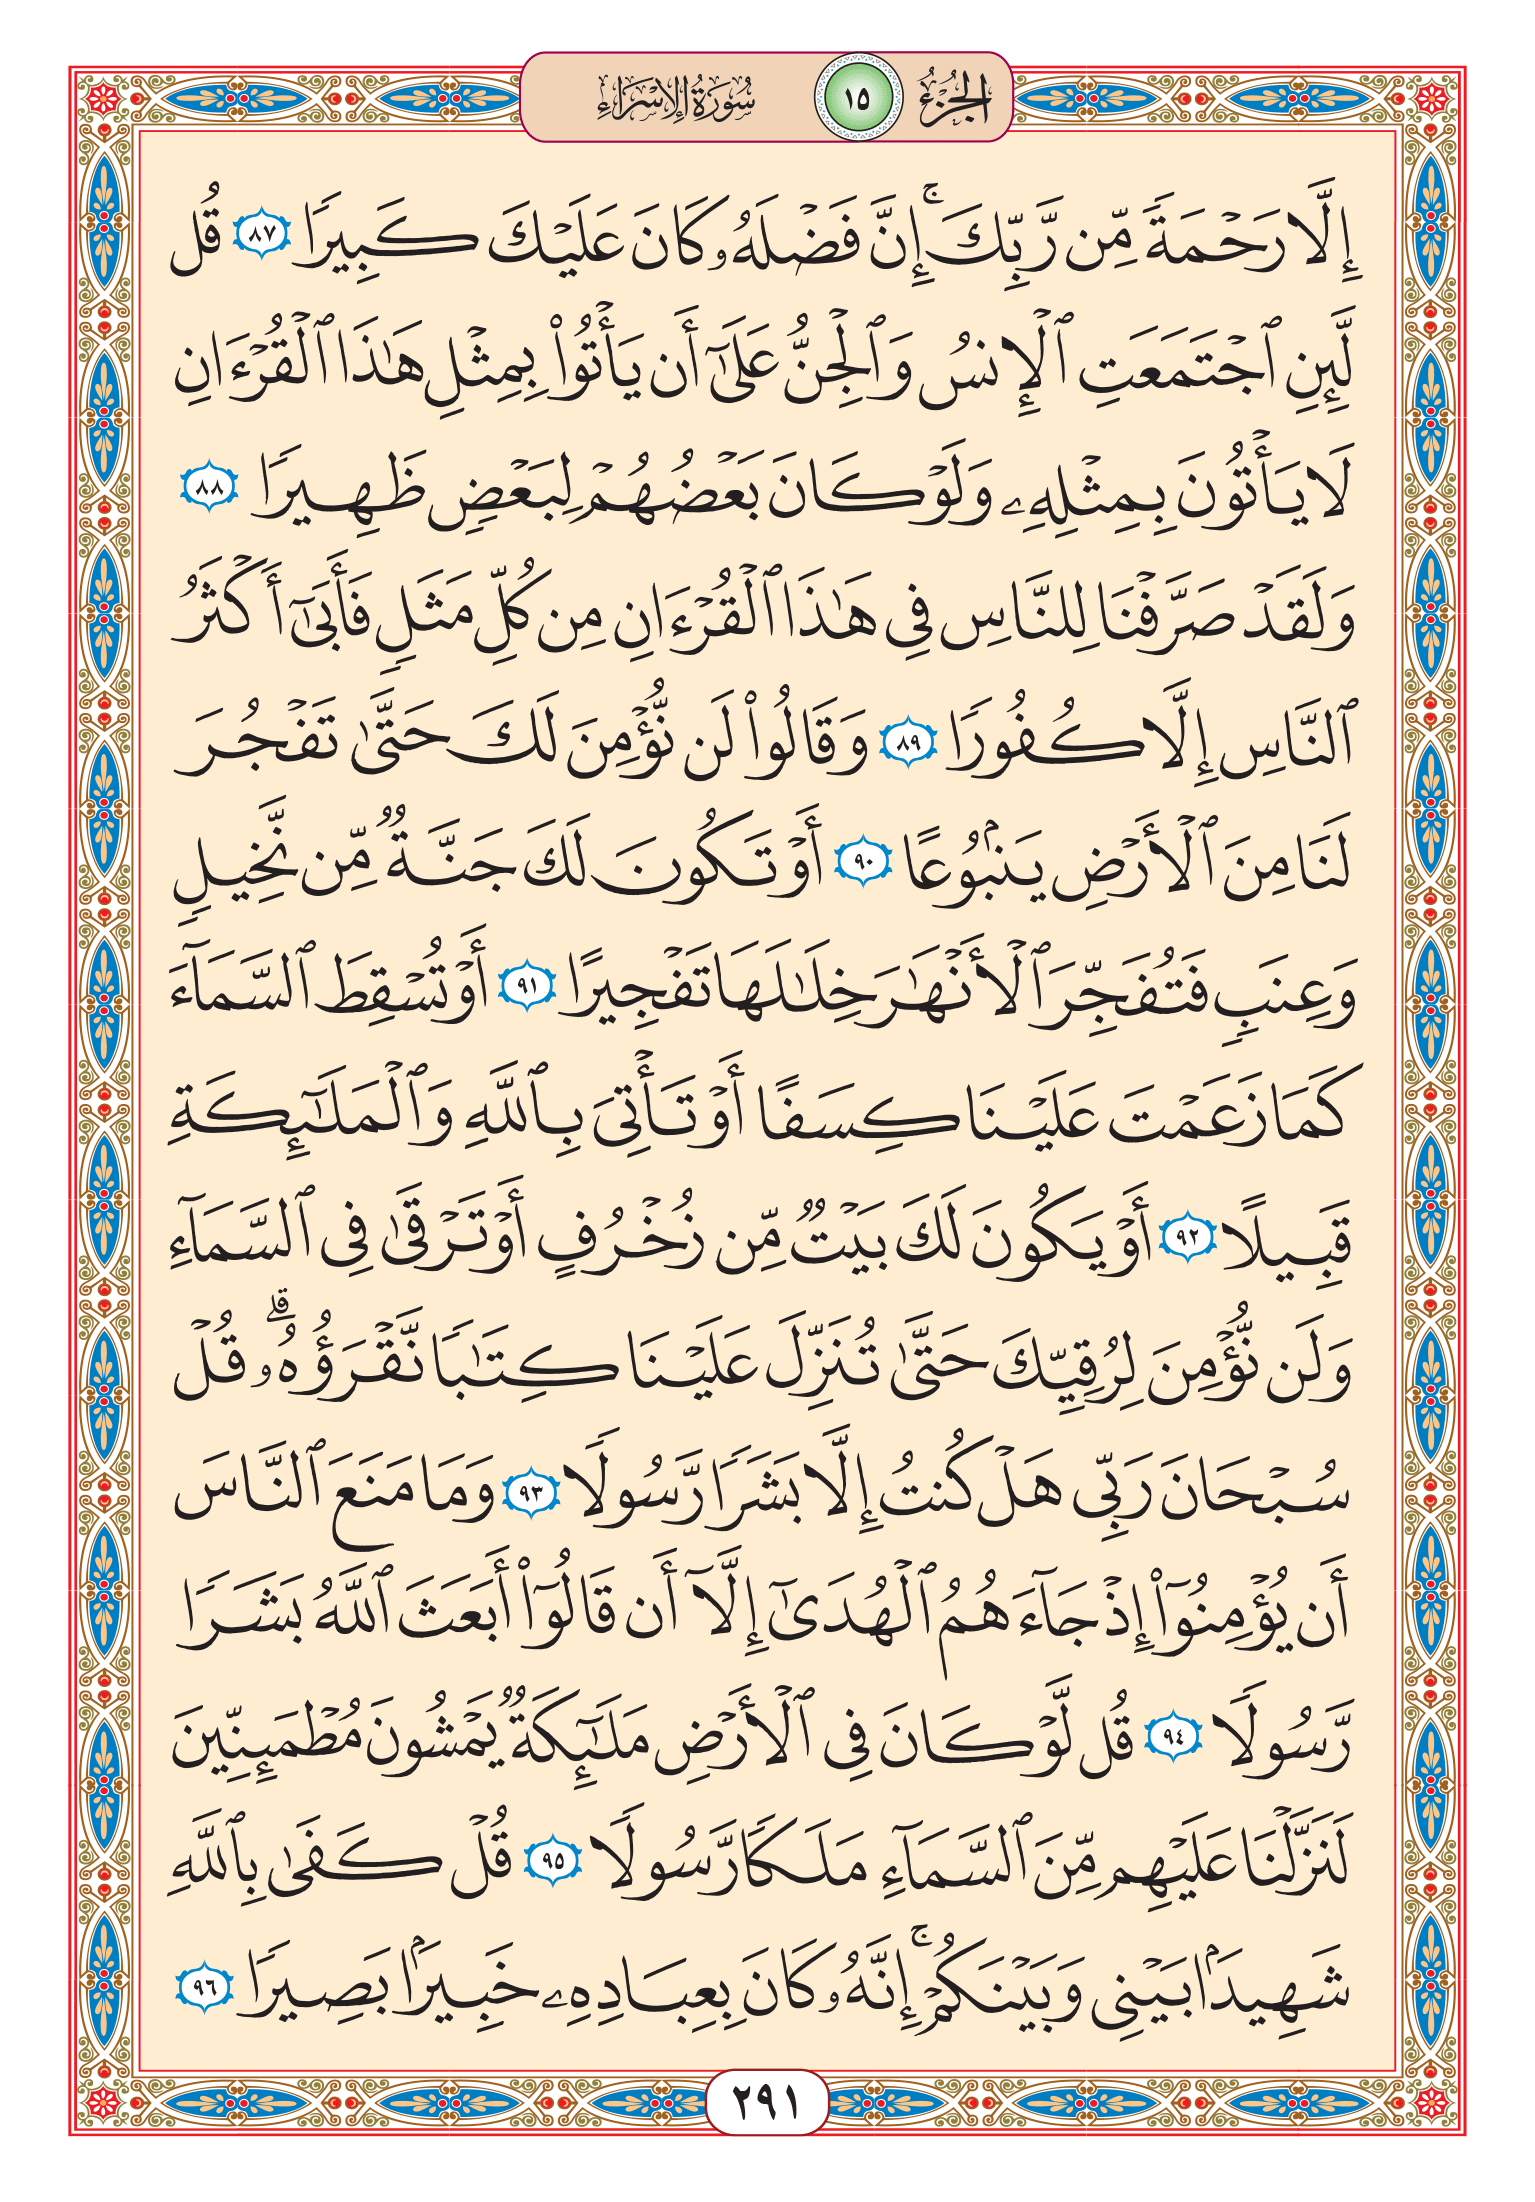 الجزء ١٥ سورة الإسراء
إِلَّا رَحۡمَةٗ مِّن رَّبِّكَۚ إِنَّ فَضۡلَهُۥ كَانَ عَلَيۡكَ كَبِيرٗا ٨٧ قُل
لَّئِنِ ٱجۡتَمَعَتِ ٱلۡإِنسُ وَٱلۡجِنُّ عَلَىٰٓ أَن يَأۡتُواْ بِمِثۡلِ هَٰذَا ٱلۡقُرۡءَانِ
لَا يَأۡتُونَ بِمِثۡلِهِۦ وَلَوۡ كَانَ بَعۡضُهُمۡ لِبَعۡضٖ ظَهِيرٗا ٨٨
وَلَقَدۡ صَرَّفۡنَا لِلنَّاسِ فِي هَٰذَا ٱلۡقُرۡءَانِ مِن كُلِّ مَثَلٖ فَأَبَىٰٓ أَكۡثَرُ
ٱلنَّاسِ إِلَّا كُفُورٗا ٨٩ وَقَالُواْ لَن نُّؤۡمِنَ لَكَ حَتَّىٰ تَفۡجُرَ
لَنَا مِنَ ٱلۡأَرۡضِ يَنۢبُوعًا ٩٠ أَوۡ تَكُونَ لَكَ جَنَّةٞ مِّن نَّخِيلٖ
وَعِنَبٖ فَتُفَجِّرَ ٱلۡأَنۡهَٰرَ خِلَٰلَهَا تَفۡجِيرًا ٩١ أَوۡ تُسۡقِطَ ٱلسَّمَآءَ
كَمَا زَعَمۡتَ عَلَيۡنَا كِسَفًا أَوۡ تَأۡتِيَ بِٱللَّهِ وَٱلۡمَلَٰٓئِكَةِ
قَبِيلًا ٩٢ أَوۡ يَكُونَ لَكَ بَيۡتٞ مِّن زُخۡرُفٍ أَوۡ تَرۡقَىٰ فِي ٱلسَّمَآءِ
وَلَن نُّؤۡمِنَ لِرُقِيِّكَ حَتَّىٰ تُنَزِّلَ عَلَيۡنَا كِتَٰبٗا نَّقۡرَؤُهُۥۗ قُلۡ
سُبۡحَانَ رَبِّي هَلۡ كُنتُ إِلَّا بَشَرٗا رَّسُولٗا ٩٣ وَمَا مَنَعَ ٱلنَّاسَ
أَن يُؤۡمِنُوٓاْ إِذۡ جَآءَهُمُ ٱلۡهُدَىٰٓ إِلَّآ أَن قَالُوٓاْ أَبَعَثَ ٱللَّهُ بَشَرٗا
رَّسُولٗا ٩٤ قُل لَّوۡ كَانَ فِي ٱلۡأَرۡضِ مَلَٰٓئِكَةٞ يَمۡشُونَ مُطۡمَئِنِّينَ
لَنَزَّلۡنَا عَلَيۡهِم مِّنَ ٱلسَّمَآءِ مَلَكٗا رَّسُولٗا ٩٥ قُلۡ كَفَىٰ بِٱللَّهِ
شَهِيدَۢا بَيۡنِي وَبَيۡنَكُمۡۚ إِنَّهُۥ كَانَ بِعِبَادِهِۦ خَبِيرَۢا بَصِيرٗا ٩٦
٢٩١